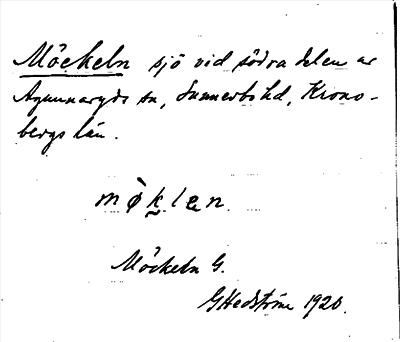 Möckeln sjö vid södra delen av
Agunnaryds sn, Sunnerbo hd, Krono-
bergs län.
mò̀klen
Möckeln G.
GHedström 1920.